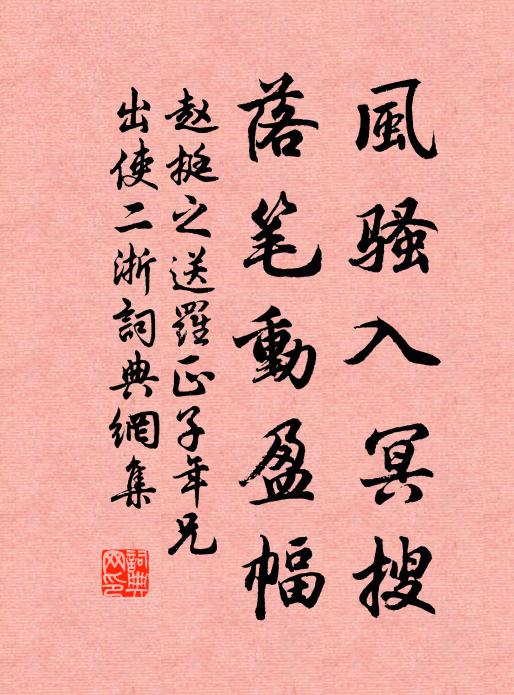 風騷入冥搜
落笔動盈幅
赵挺之送羅正子年兄
出使二浙詞典網集
詞典网印